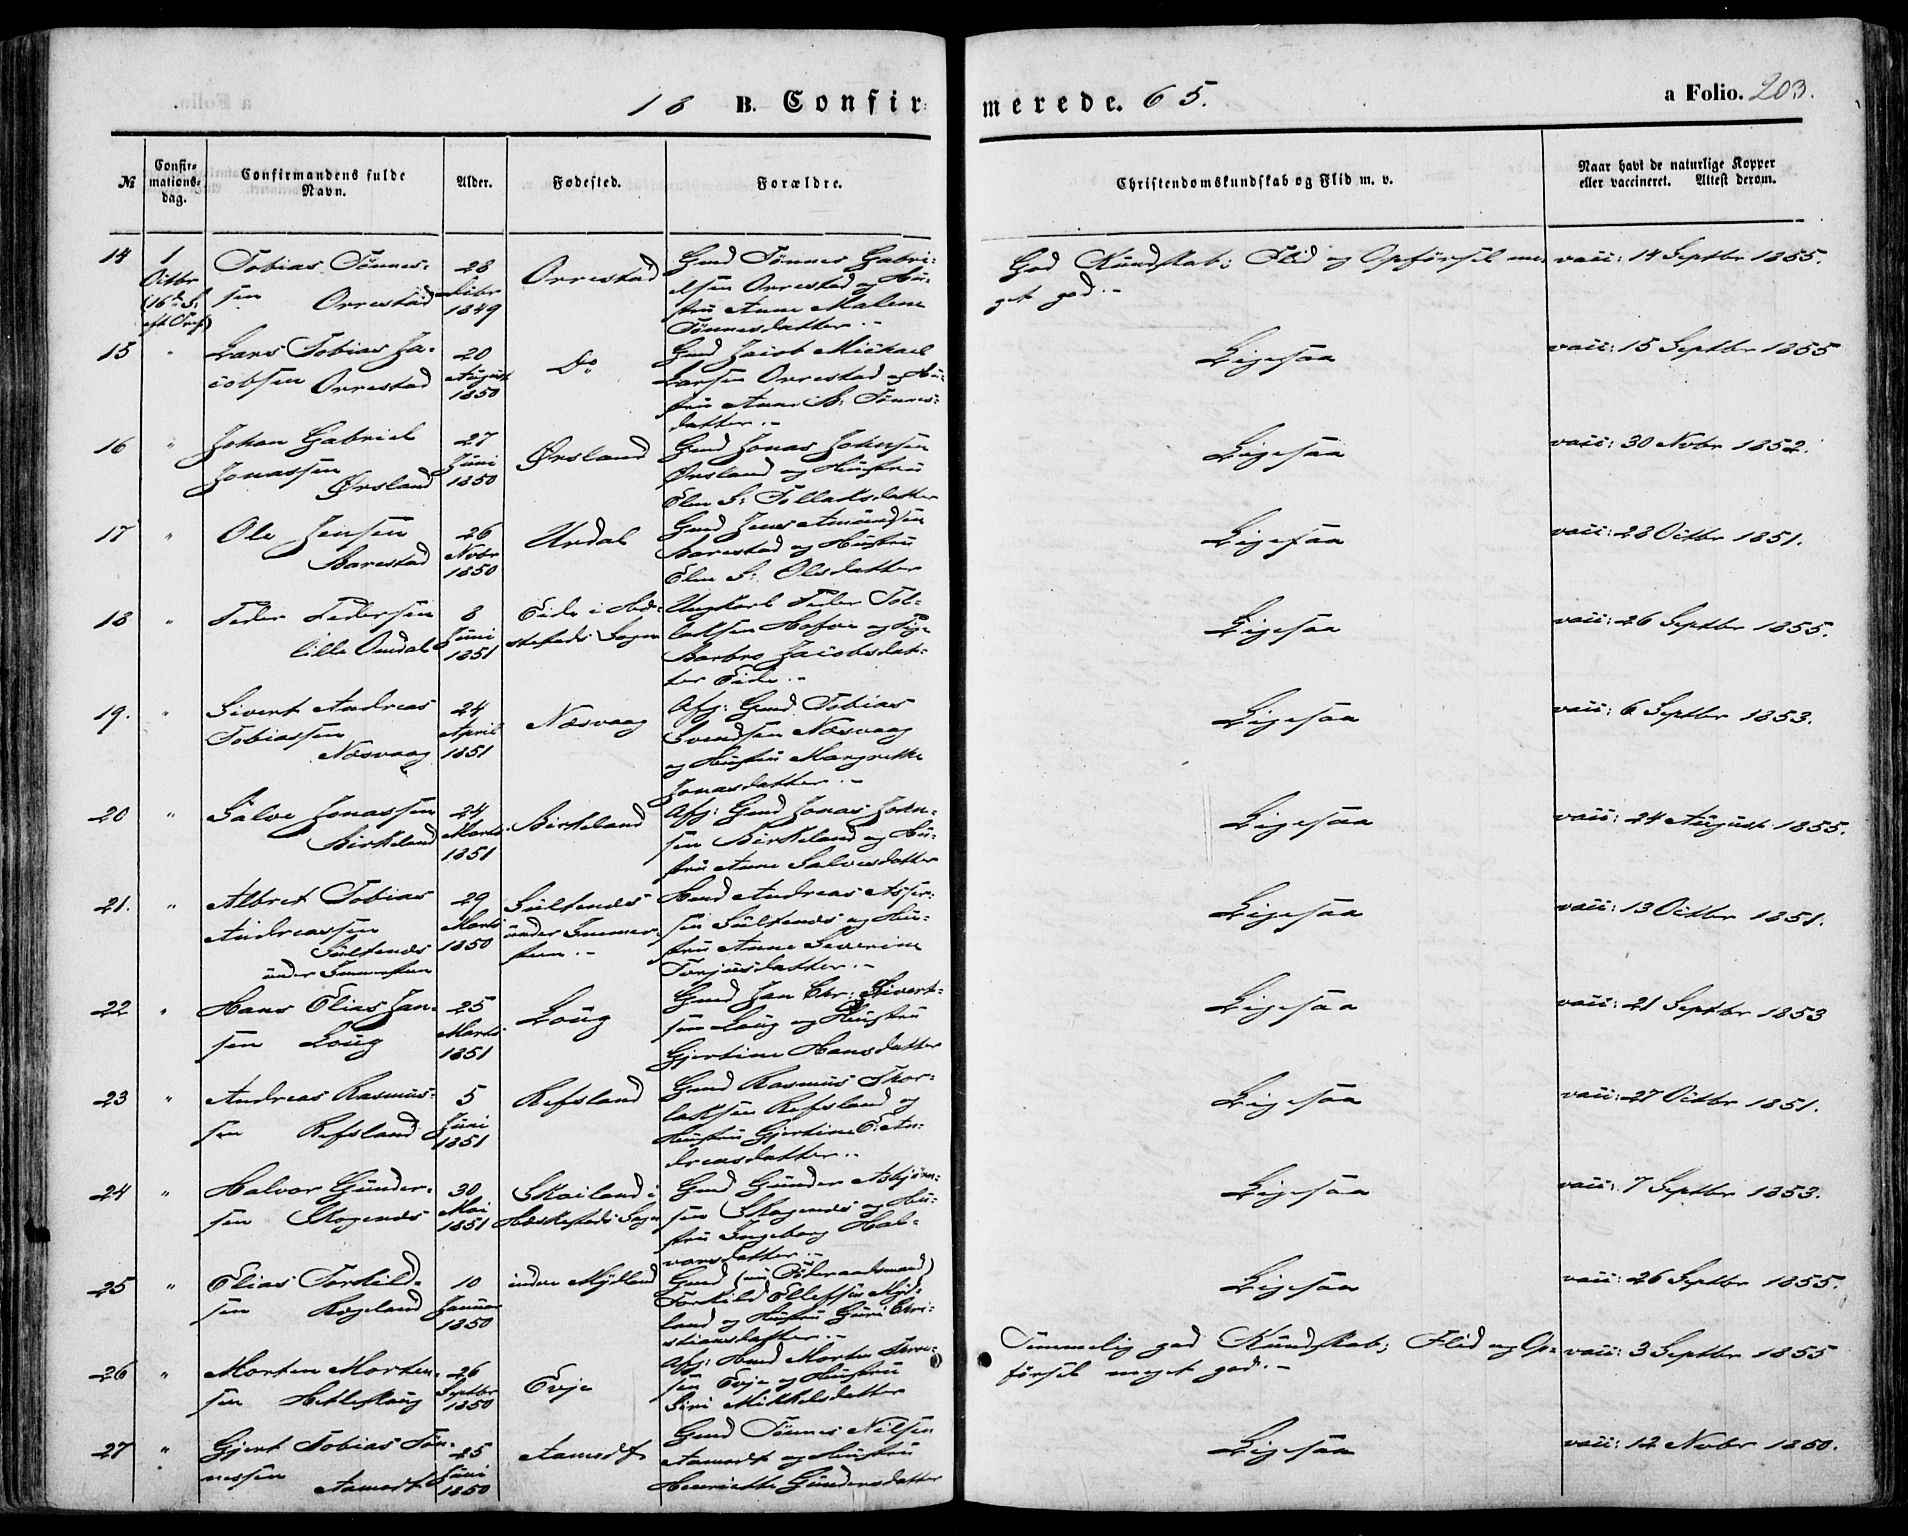 18 B. Confirmerede. 65.
a Folio. 203.
№
Confirmationsdag.
Confirmandens fulde Navn.
Alder.
Fødested.
Forældre.
Christendomskundskab og Flid m. v.
Naar havt de naturlige Kopper eller vaccineret. Attest derom.
14
1 Octbr (16de S. eft. Tref)
Tobias Tønnes-
sen Orrestad
28 1849
Orrestad
Gmd Tønnes Gabri-
elsen Orrestad og Hu-
stru Anne Malene
Tønnesdatter.-
God Kundskab; Flid og Opførsel me-
get god.-
vacc: 14 Septbr 1855.
15
"
Lars Tobias Ja-
cobsen Orrestad
20 August 1850
Do
Gmd Jacob Michael
Larsen Orrestad og Hu-
stru Anne S: Tønnes-
datter.-
Ligesaa
vacc: 15 Septbr 1855
16
"
Johan Gabriel
Jonassen
Ørsland
27 Juni 1850
Ørsland
Gmd Jonas Johnsen
Ørsland og Hustru
Elen S: Tollaksdatter
Ligesaa
vacc: 30 Novbr 1852.
17
"
Ole Jensen
Barestad
26 Novbr 1850
Urdal
Gmd Jens Amundsen
Barestad og Hustru
Elen S: Olsdatter
Ligesaa
vacc: 28 Octbr 1851.
18
"
Peder Pedersen
lille Omdal
8 Juni 1851
Eide i Hæ-
skestads Sogn
Ungkarl Peder Tol-
laksen Hofve og Pige
Barbro Jacobsdat-
ter Eide.-
Ligesaa
vacc: 26 Septbr 1855.
19.
"
Sivert Andreas
Tobiassen
Næsvaag
24 April 1851
Næsvaag
Afg: Gmd Tobias
Svendsen Næsvaag
og Hustru Margrethe
Jonasdatter.-
Ligesaa
vacc: 6 Septbr 1853.
20
"
Salve Jonassen
Birkeland
24 Marts 1851
Birkeland
Afg: Gmd Jonas John-
sen Birkeland og Hu-
stru Anne Salvesdatter
Ligesaa
vacc: 24 August 1855.
21.
"
Albret Tobias
Andreassen
Sültenæs
under Immersteen
29 Marts 1850
Sültenæs
under Immer-
steen.-
Hmd Andreas Asser-
sen Sültenæs og Hu-
stru Anne Severine
Torjusdatter.-
Ligesaa
vacc: 13 Octbr 1851.
22
"
Hans Elias Jan-
sen Loug
25 Marts 1851
Loug
Gmd Jan Chr: Sivert-
sen Loug og Hustru
Gjertine Hansdatter
Ligesaa
vacc: 21 Septbr 1853
23
"
Andreas Rasmus-
sen Refsland
5 Juni 1851
Refsland
Gmd Rasmus Thor-
laksen Refsland og
Hustru Gjertine E: An-
dreasdatter.-
Ligesaa
vacc: 27 Octbr 1851.
24
"
Halvor Gunder-
sen Skogenæs
30 Mai 1851
Skailand i
Hæskestads Sogn
Gmd Gunder Asbjørn-
sen Skogenæs og Hu-
stru Ingeborg Hal-
vorsdatter.-
Ligesaa
vacc: 7 Septbr 1853.
25
"
Elias Torkild-
sen Rægeland
10 Januar 1850
indre Mydland
Gmd (nu Føderaadsmand)
Torkild Ellefsen Myd-
land og Hustru Guri Chri-
stiansdatter.-
Ligesaa
vacc: 26 Septbr 1855.
26
"
Morten Morten-
sen Hetleskoug
26 Septbr 1850
Evje
Afg: Hmd Morten
sen Evje og Hustru
Siri Mikkelsdatter
Temmelig god Kundskab; Flid og Op-
førsel meget god.-
vacc: 3 Septbr 1855
27
"
Gjert Tobias Tøn-
nessen
Aamodt
25 Juni 1850
Aamodt
Gmd Tønnes Nilsen
Aamodt og Hustru
Henriette Gundersdatter
Ligesaa
vacc: 12 Novbr 1850.